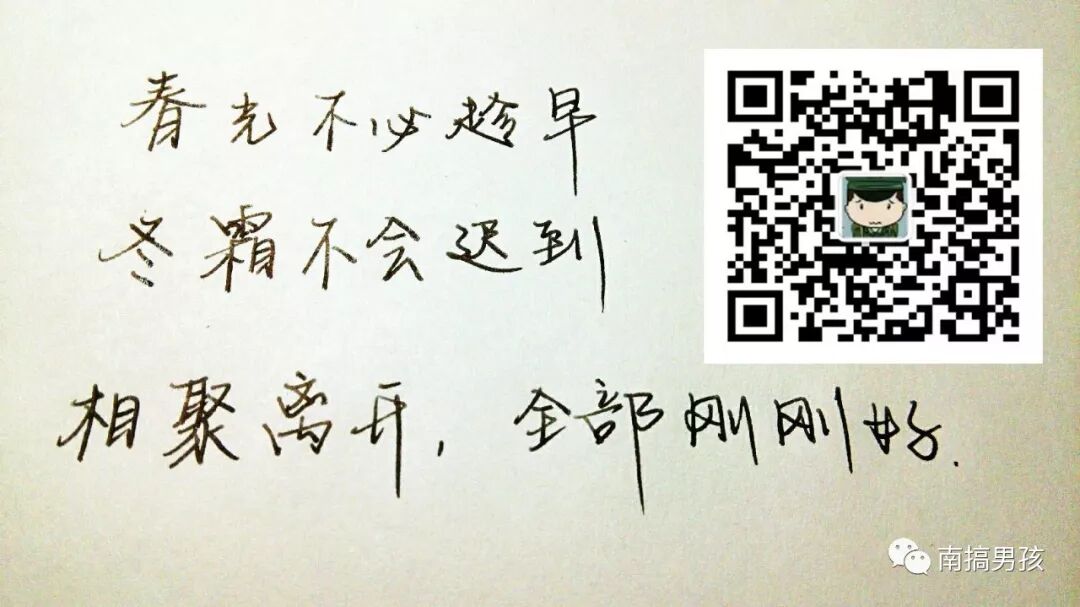 春光不必趁早
冬霜不会迟到
相聚离开,全部刚刚好.
南搞男孩